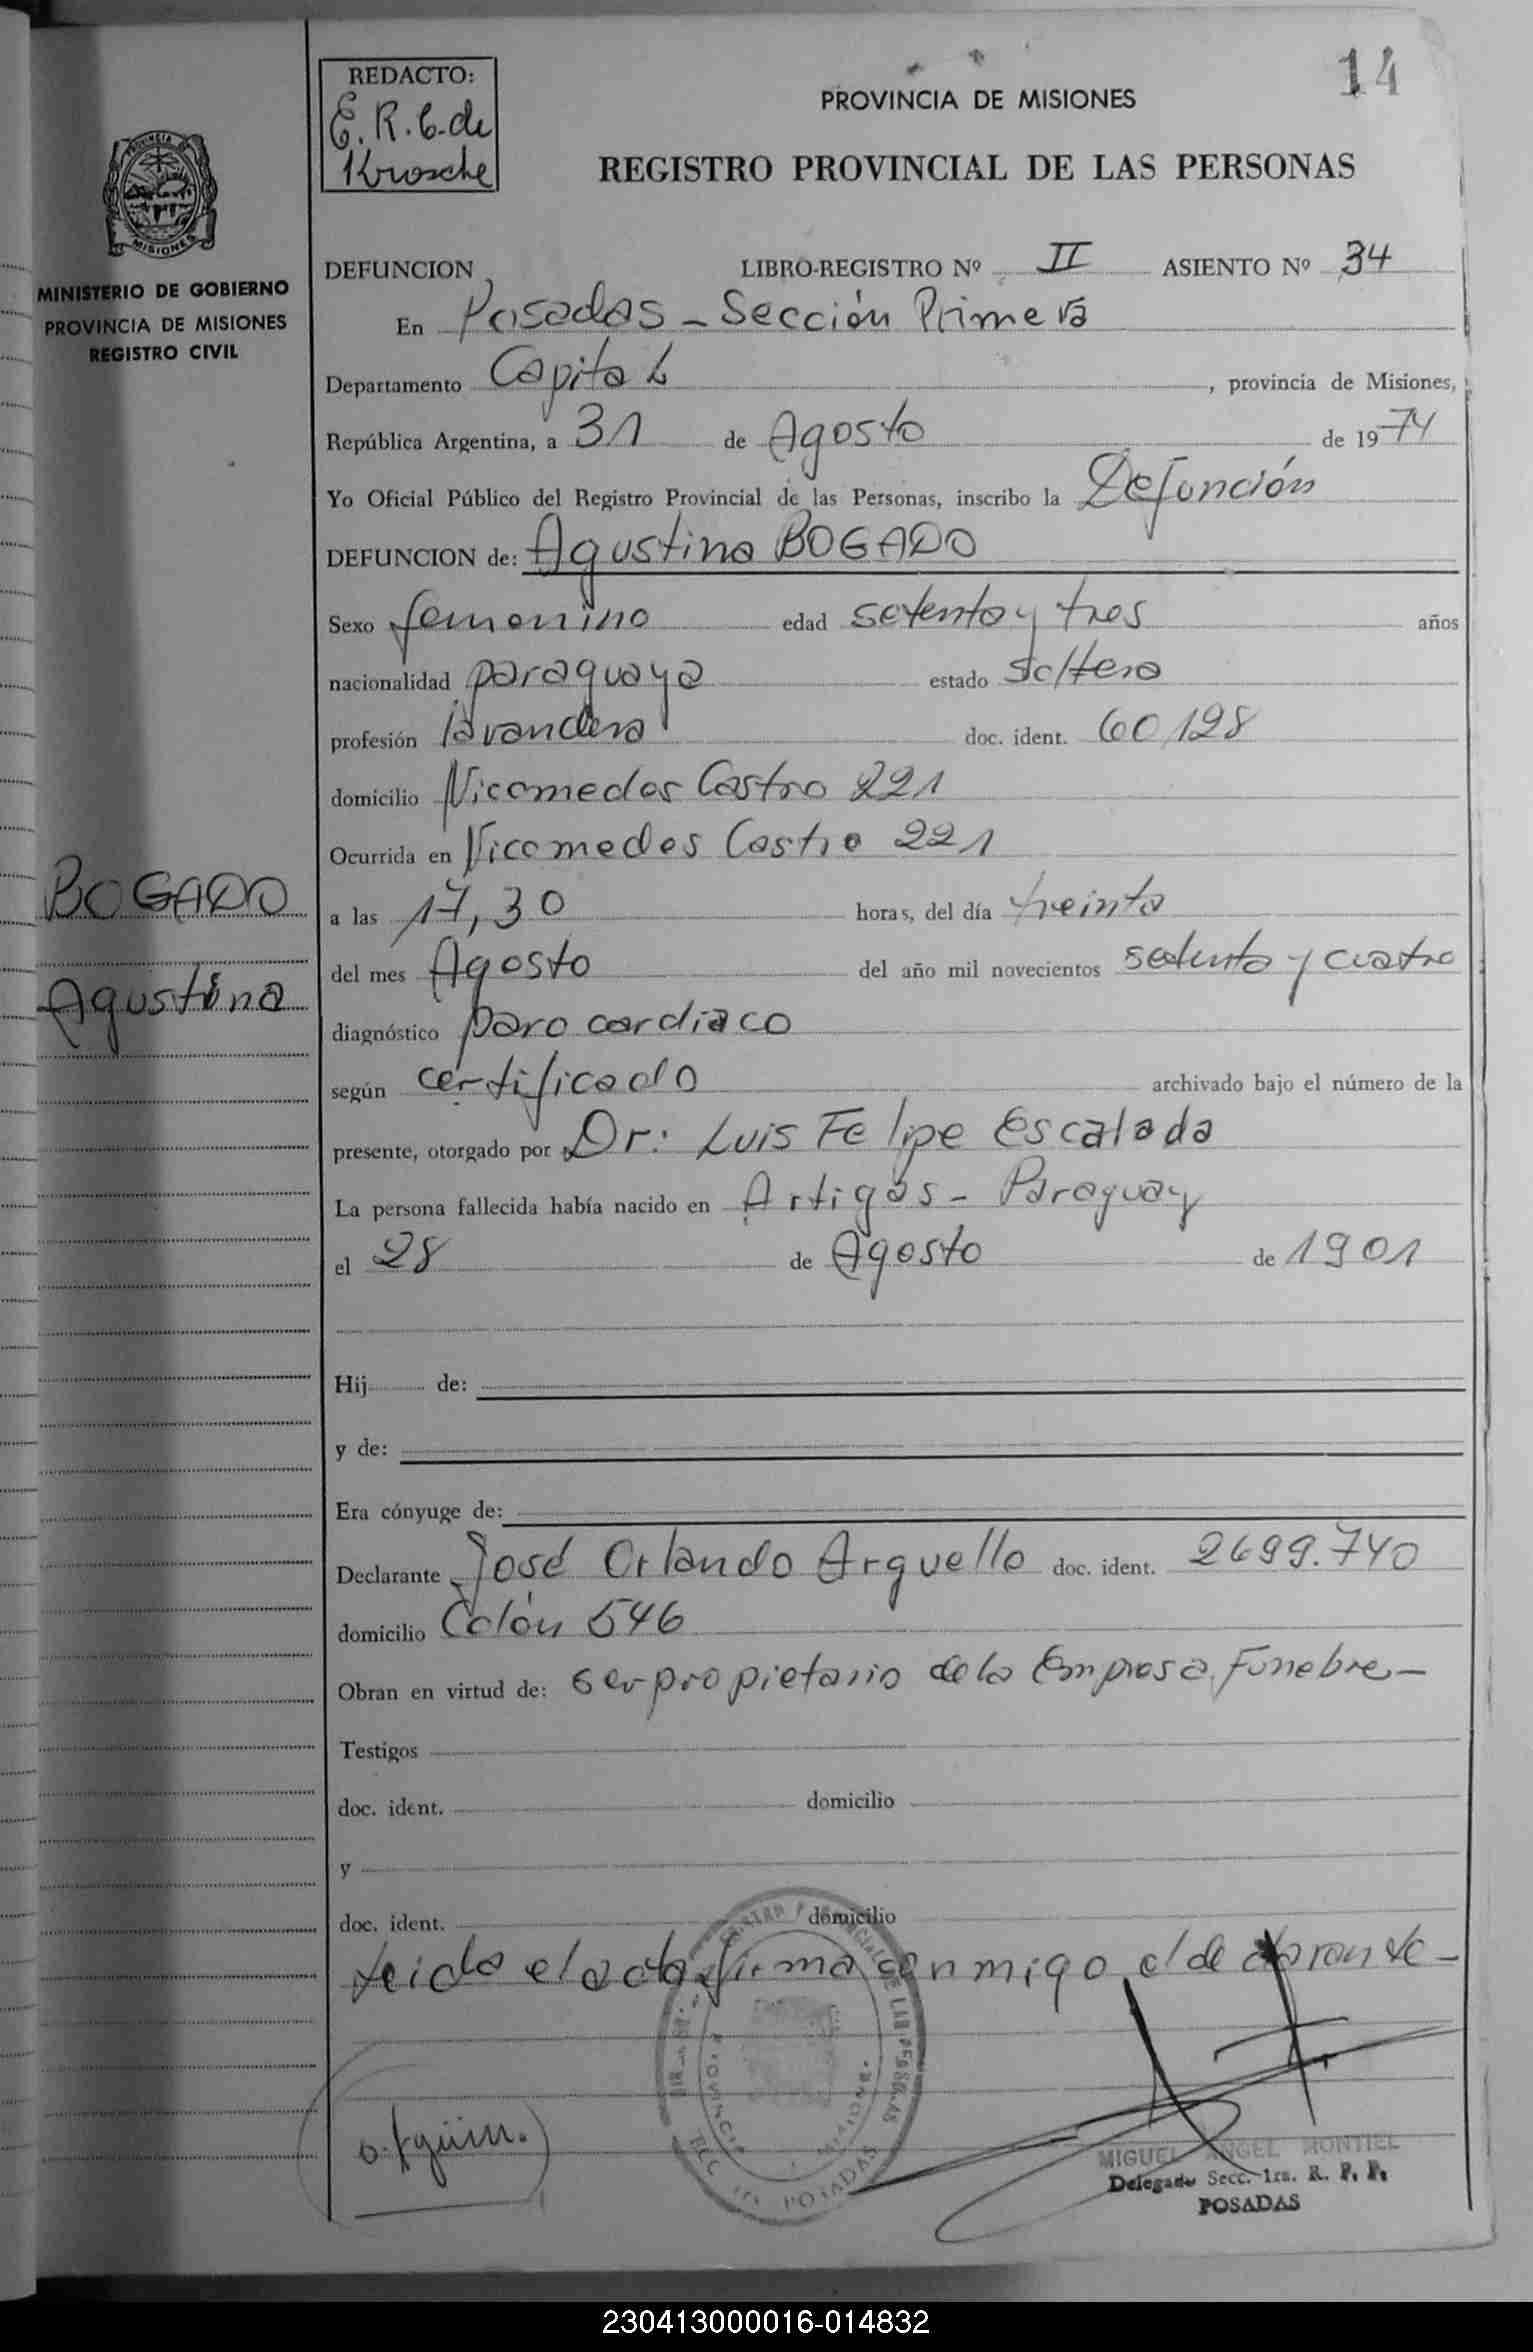 14
REDACTO:
E. R. C. de
Krosche
PROVINCIA DE MISIONES
REGISTRO PROVINCIAL DE LAS PERSONAS
PROVINCIA DE
MISIONES
MINISTERIO DE GOBIERNO
PROVINCIA DE MISIONES
REGISTRO CIVIL
DEFUNCION LIBRO-REGISTRO Nº II ASIENTO Nº 34
En Posadas - Sección Primera
Departamento Capital, provincia de Misiones,
República Argentina, a 31 de Agosto de 1974
Yo Oficial Público del Registro Provincial de las Personas, inscribo la Defunción
DEFUNCION de: Agustina BOGADO
Sexo femenino edad setenta y tres años
nacionalidad paraguaya estado soltera
profesión lavandera doc. ident. 60,128
domicilio Nicomedes Castro 221
Ocurrida en Nicomedes Castro 221
BOGADO
Agustina
a las 17,30 horas, del día treinta
del mes Agosto del año mil novecientos setenta y cuatro
diagnóstico paro cardiaco
según certificado archivado bajo el número de la
presente, otorgado por Dr: Luis Felipe Escalada
La persona fallecida había nacido en Artigas - Paraguay
el 28 de Agosto de 1901
Hij de:
y de:
Era cónyuge de:
Declarante José Orlando Arguello doc. ident. 2699.740
domicilio Colón 546
Obran en virtud de: ser propietario de la Empresa Funebre-
Testigos
doc. ident. domicilio
y
doc. ident. domicilio
Leida el acta firma conmigo el declarante-
MIGUEL ANGEL MONTIEL
Delegado Secc. 1ra. R. P. P.
POSADAS
230413000016-014832